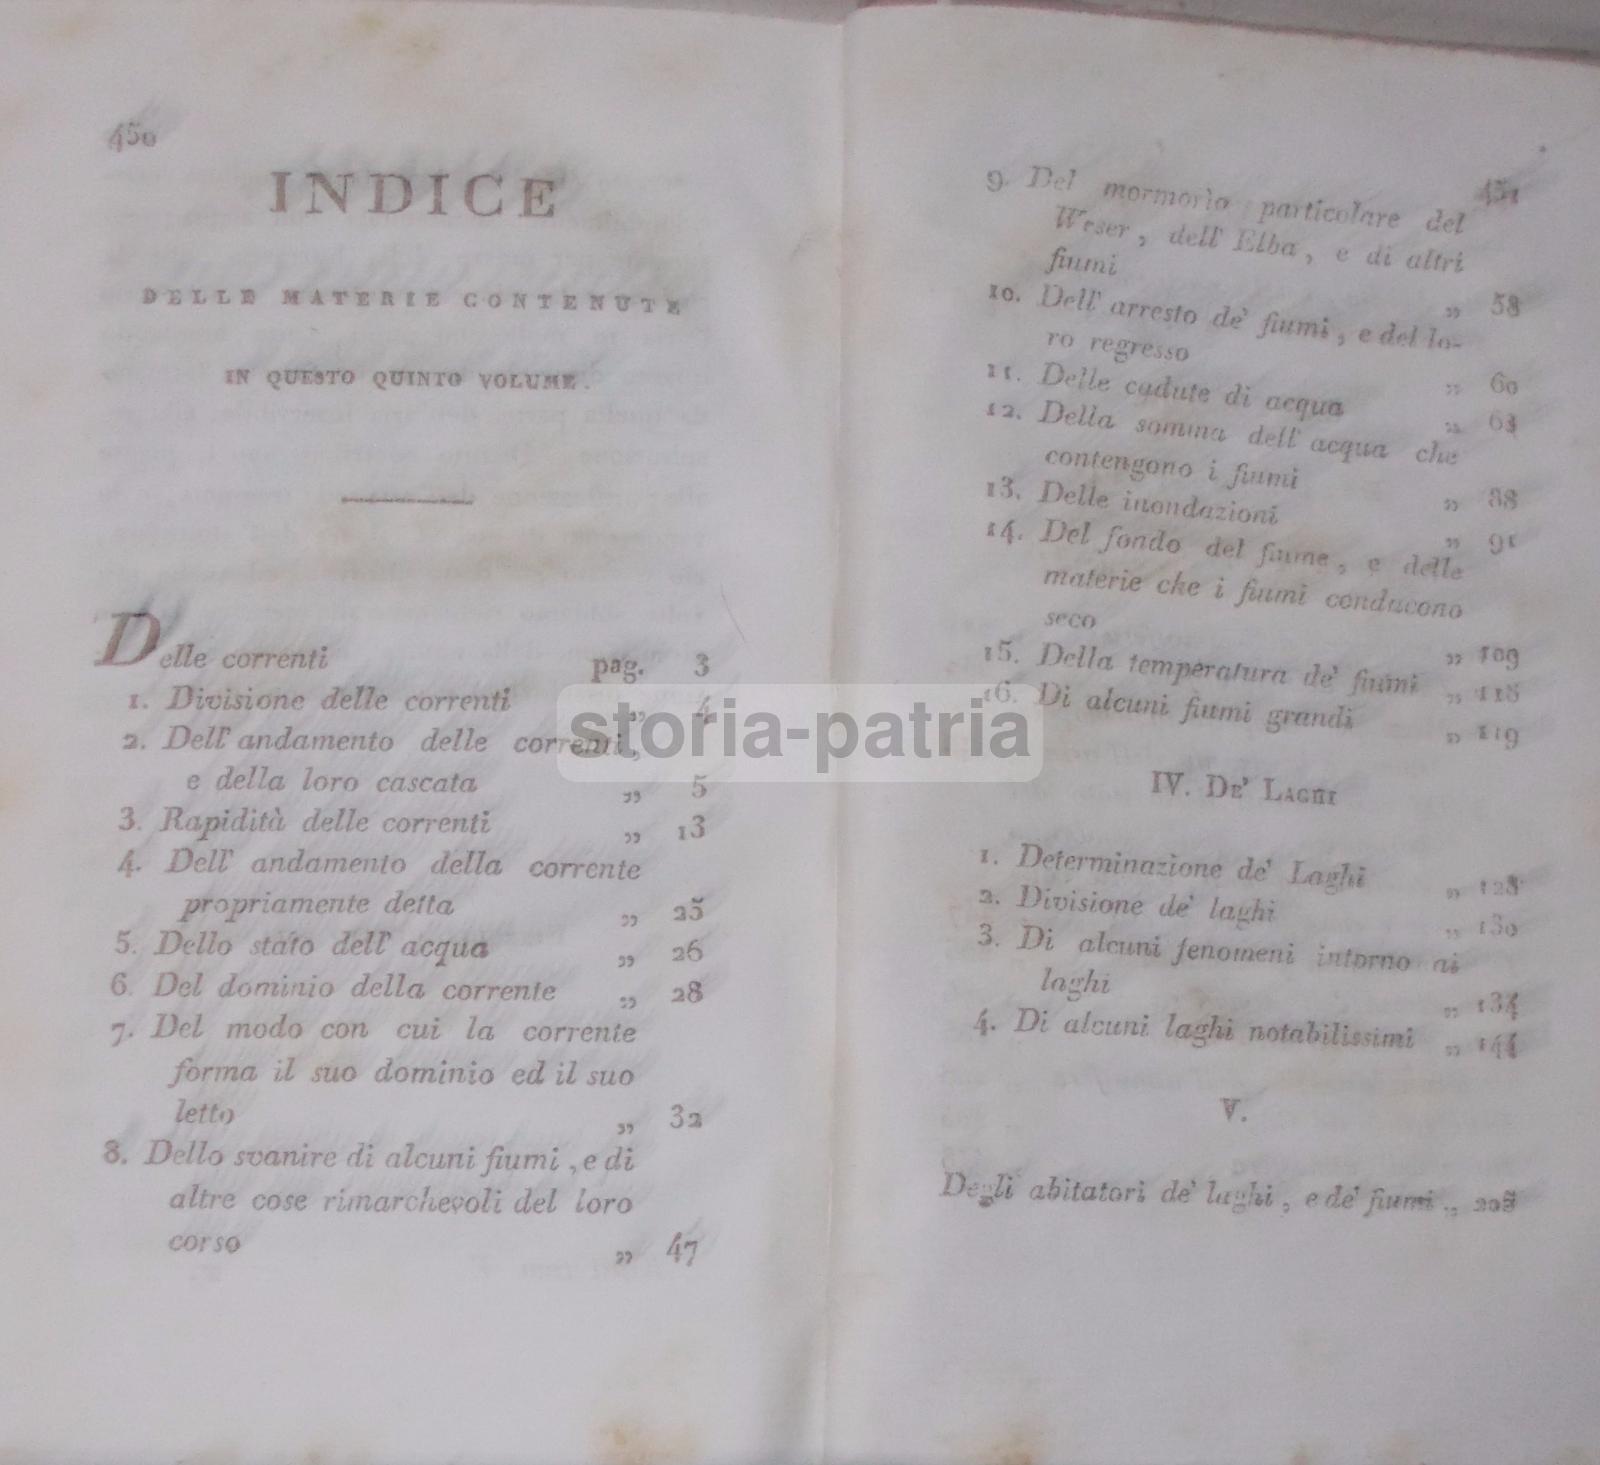 450
INDICE
DELLE MATERIE CONTENUTE
IN QUESTO QUINTO VOLUME.
Delle correnti pag. 3
1. Divisione delle correnti „ 4
2. Dell' andamento delle correnti,
e della loro cascata „ 5
3. Rapidità delle correnti „ 13
4. Dell' andamento della corrente
propriamente detta „ 25
5. Dello stato dell' acqua „ 26
6. Del dominio della corrente „ 28
7. Del modo con cui la corrente
forma il suo dominio ed il suo
letto „ 32
8. Dello svanire di alcuni fiumi, e di
altre cose rimarchevoli del loro
corso „ 47
451
9. Del mormorìo particolare del
Weser, dell' Elba, e di altri
fiumi „ 58
10. Dell' arresto de' fiumi, e del lo-
ro regresso „ 60
11. Delle cadute di acqua „ 63
12. Della somma dell' acqua che
contengono i fiumi „ 88
13. Delle inondazioni „ 91
14. Del fondo del fiume, e delle
materie che i fiumi conducono
seco „ 109
15. Della temperatura de' fiumi „ 118
16. Di alcuni fiumi grandi „ 119
IV. DE' LAGHI
1. Determinazione de' Laghi „ 128
2. Divisione de' laghi „ 130
3. Di alcuni fenomeni intorno ai
laghi „ 134
4. Di alcuni laghi notabilissimi „ 144
V.
Degli abitatori de' laghi, e de' fiumi „
storia-patria